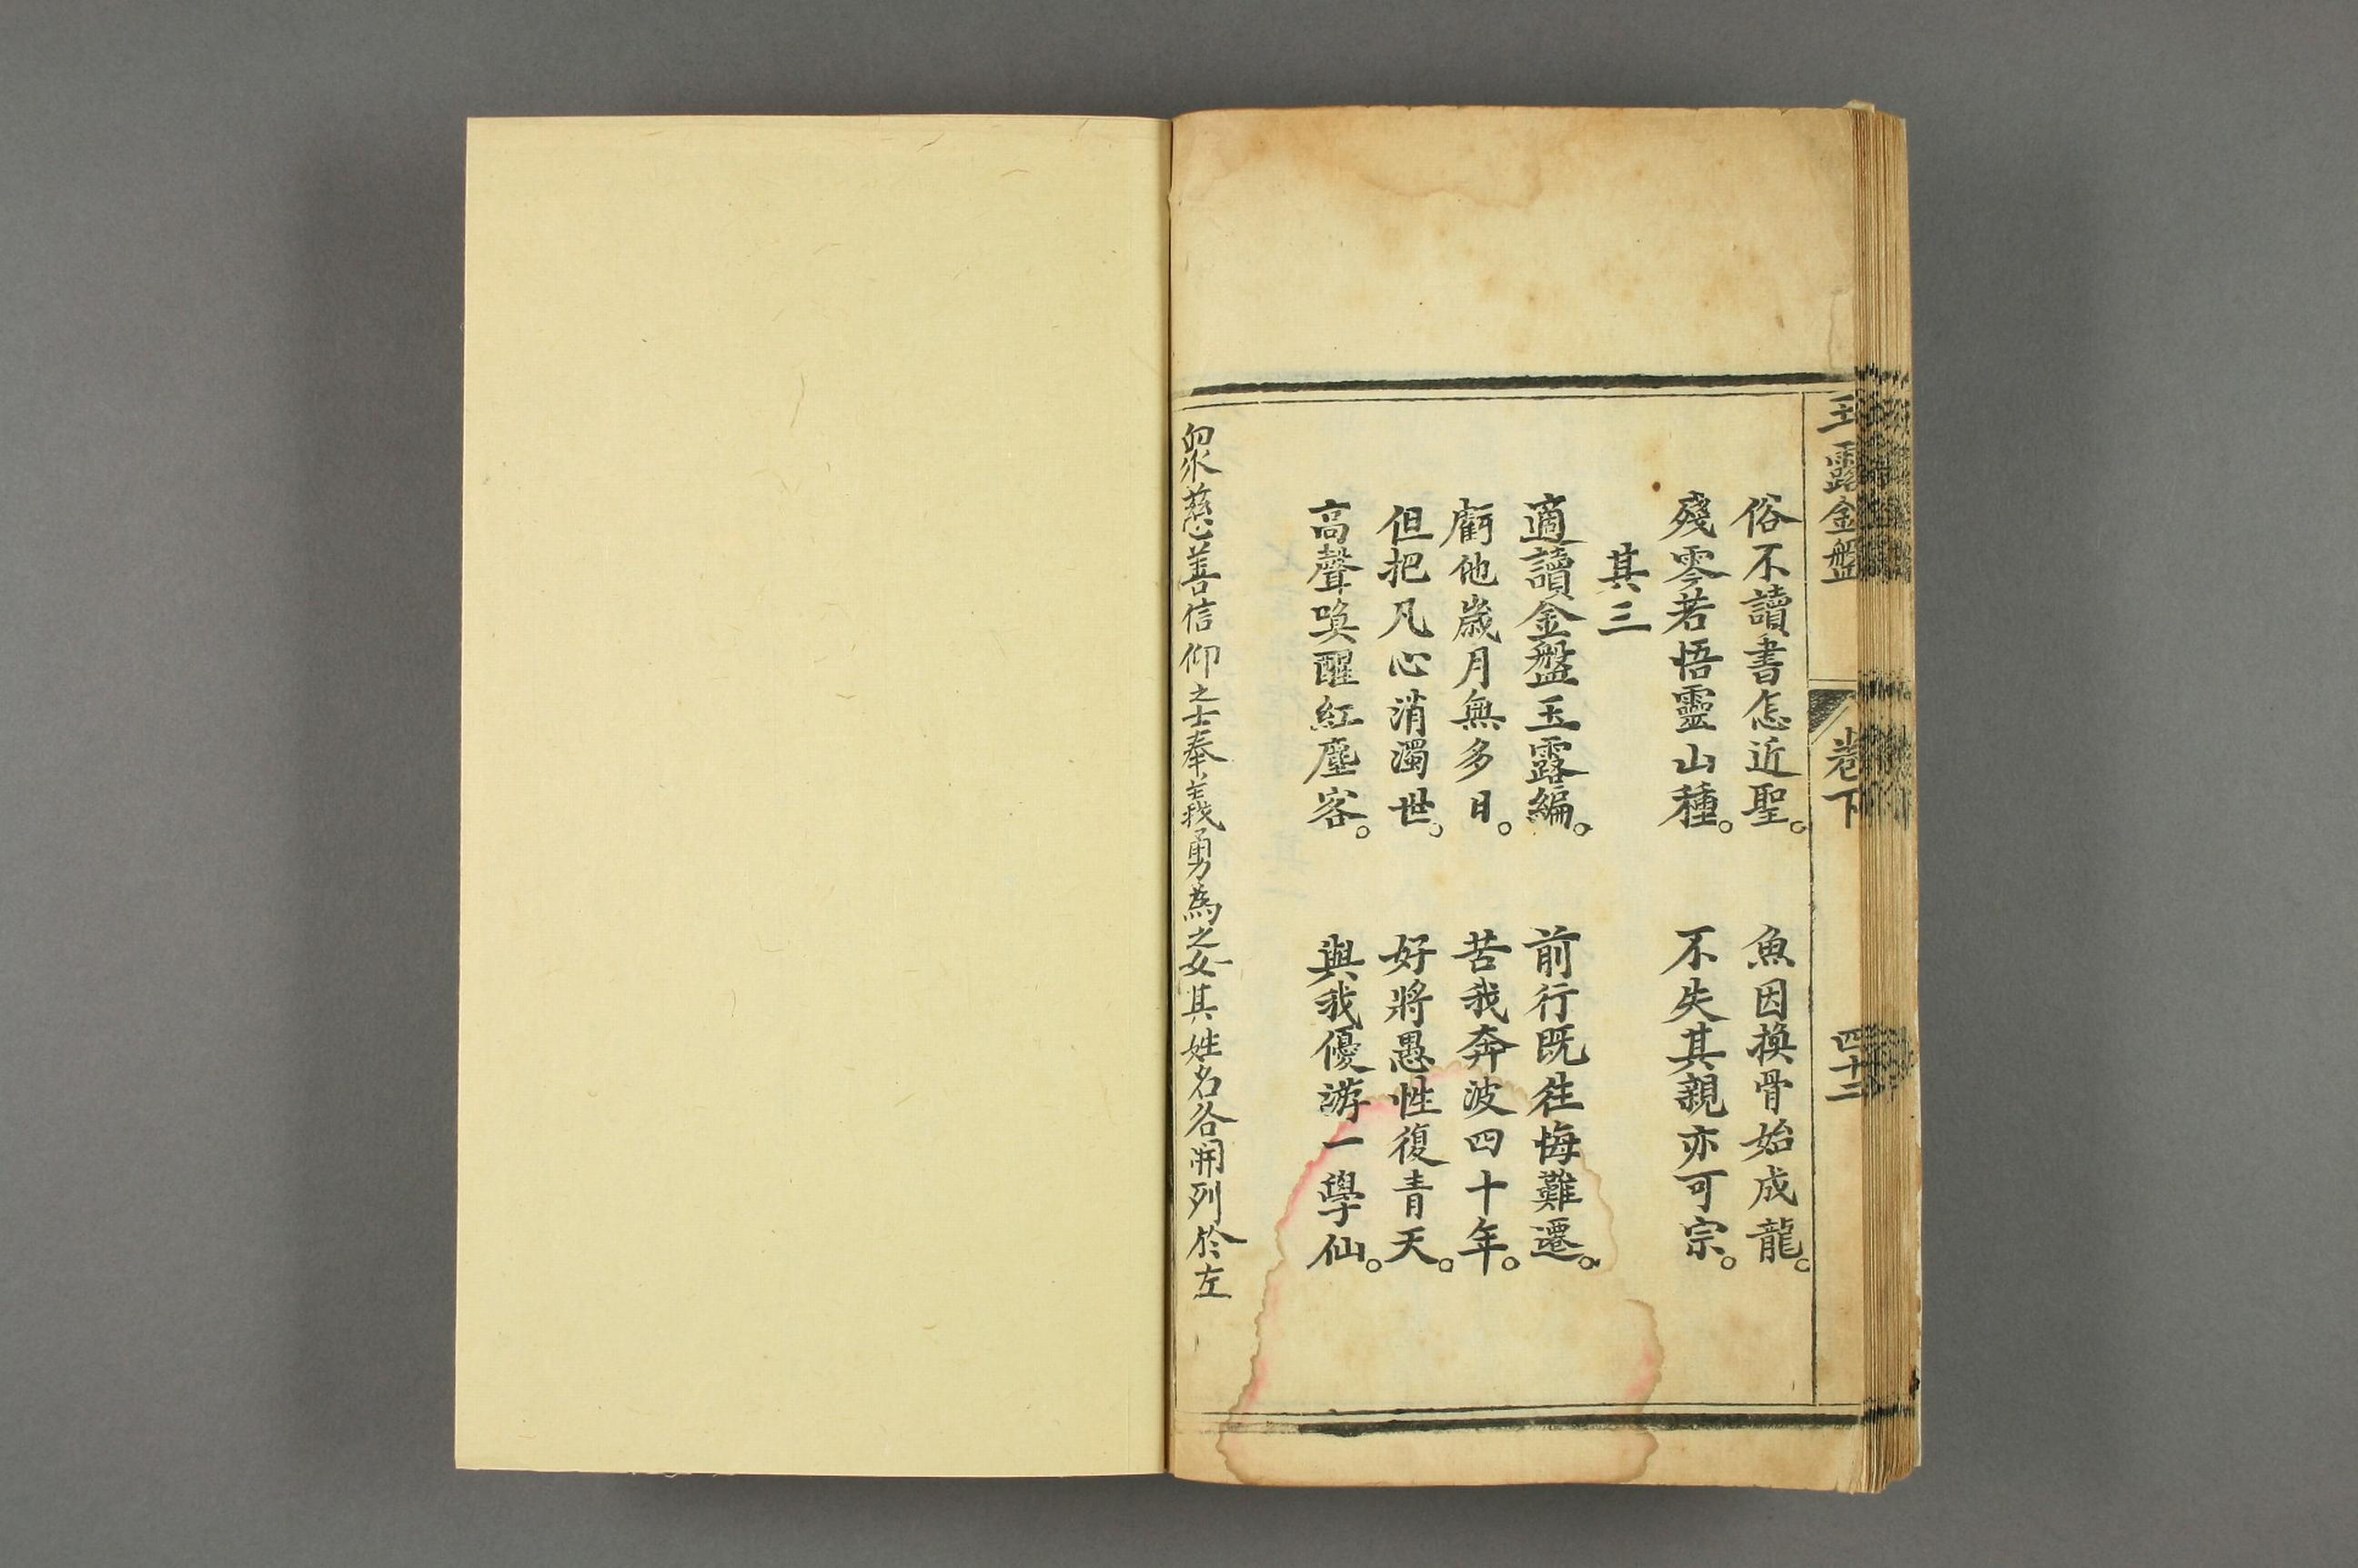 玉露金盤
卷下
四十二
俗不讀書怎近聖。 魚因換骨始成龍。
殘零若悟靈山種。 不失其親亦可宗。
其三
適讀金盤玉露編。 前行既往悔難遷。
虧他歲月無多日。 苦我奔波四十年。
但把凡心消濁世。 好將愚性復青天。
高聲喚醒紅塵客。 與我優游一學仙。
眾慈善信仰之士奉義勇為之女其姓名各開列於左